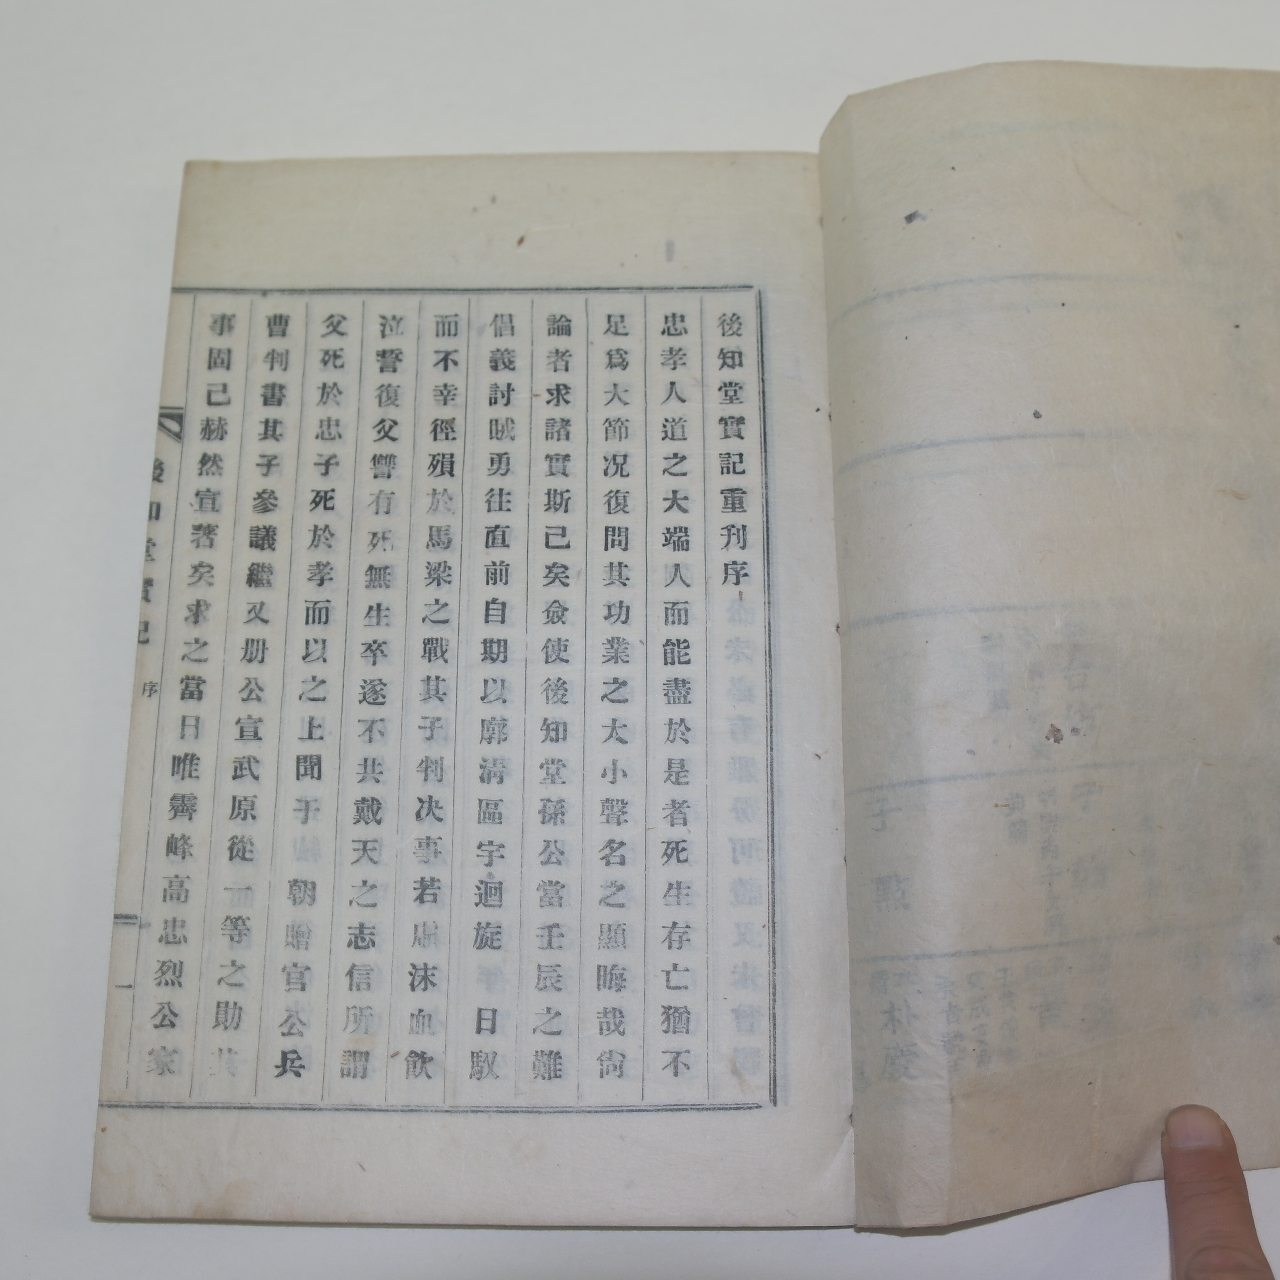 後知堂實記重刋序
忠孝人道之大端人而能盡於是者死生存亡猶不
足爲大節况復問其功業之大小聲名之顯晦哉尙
論者求諸實斯己矣僉使後知堂孫公當壬辰之難
倡義討賊勇往直前自期以廓淸區宇迴旋日馭
而不幸徑殞於馬梁之戰其子判决事若虛沫血飮
泣誓復父讐有死無生卒遂不共戴天之志信所謂
父死於忠子死於孝而以之上聞于朝贈官公兵
曹判書其子參議繼又册公宣武原從一等之勛其
事固己赫然宣著矣求之當日唯霽峰高忠烈公家
後知堂實記
序
一